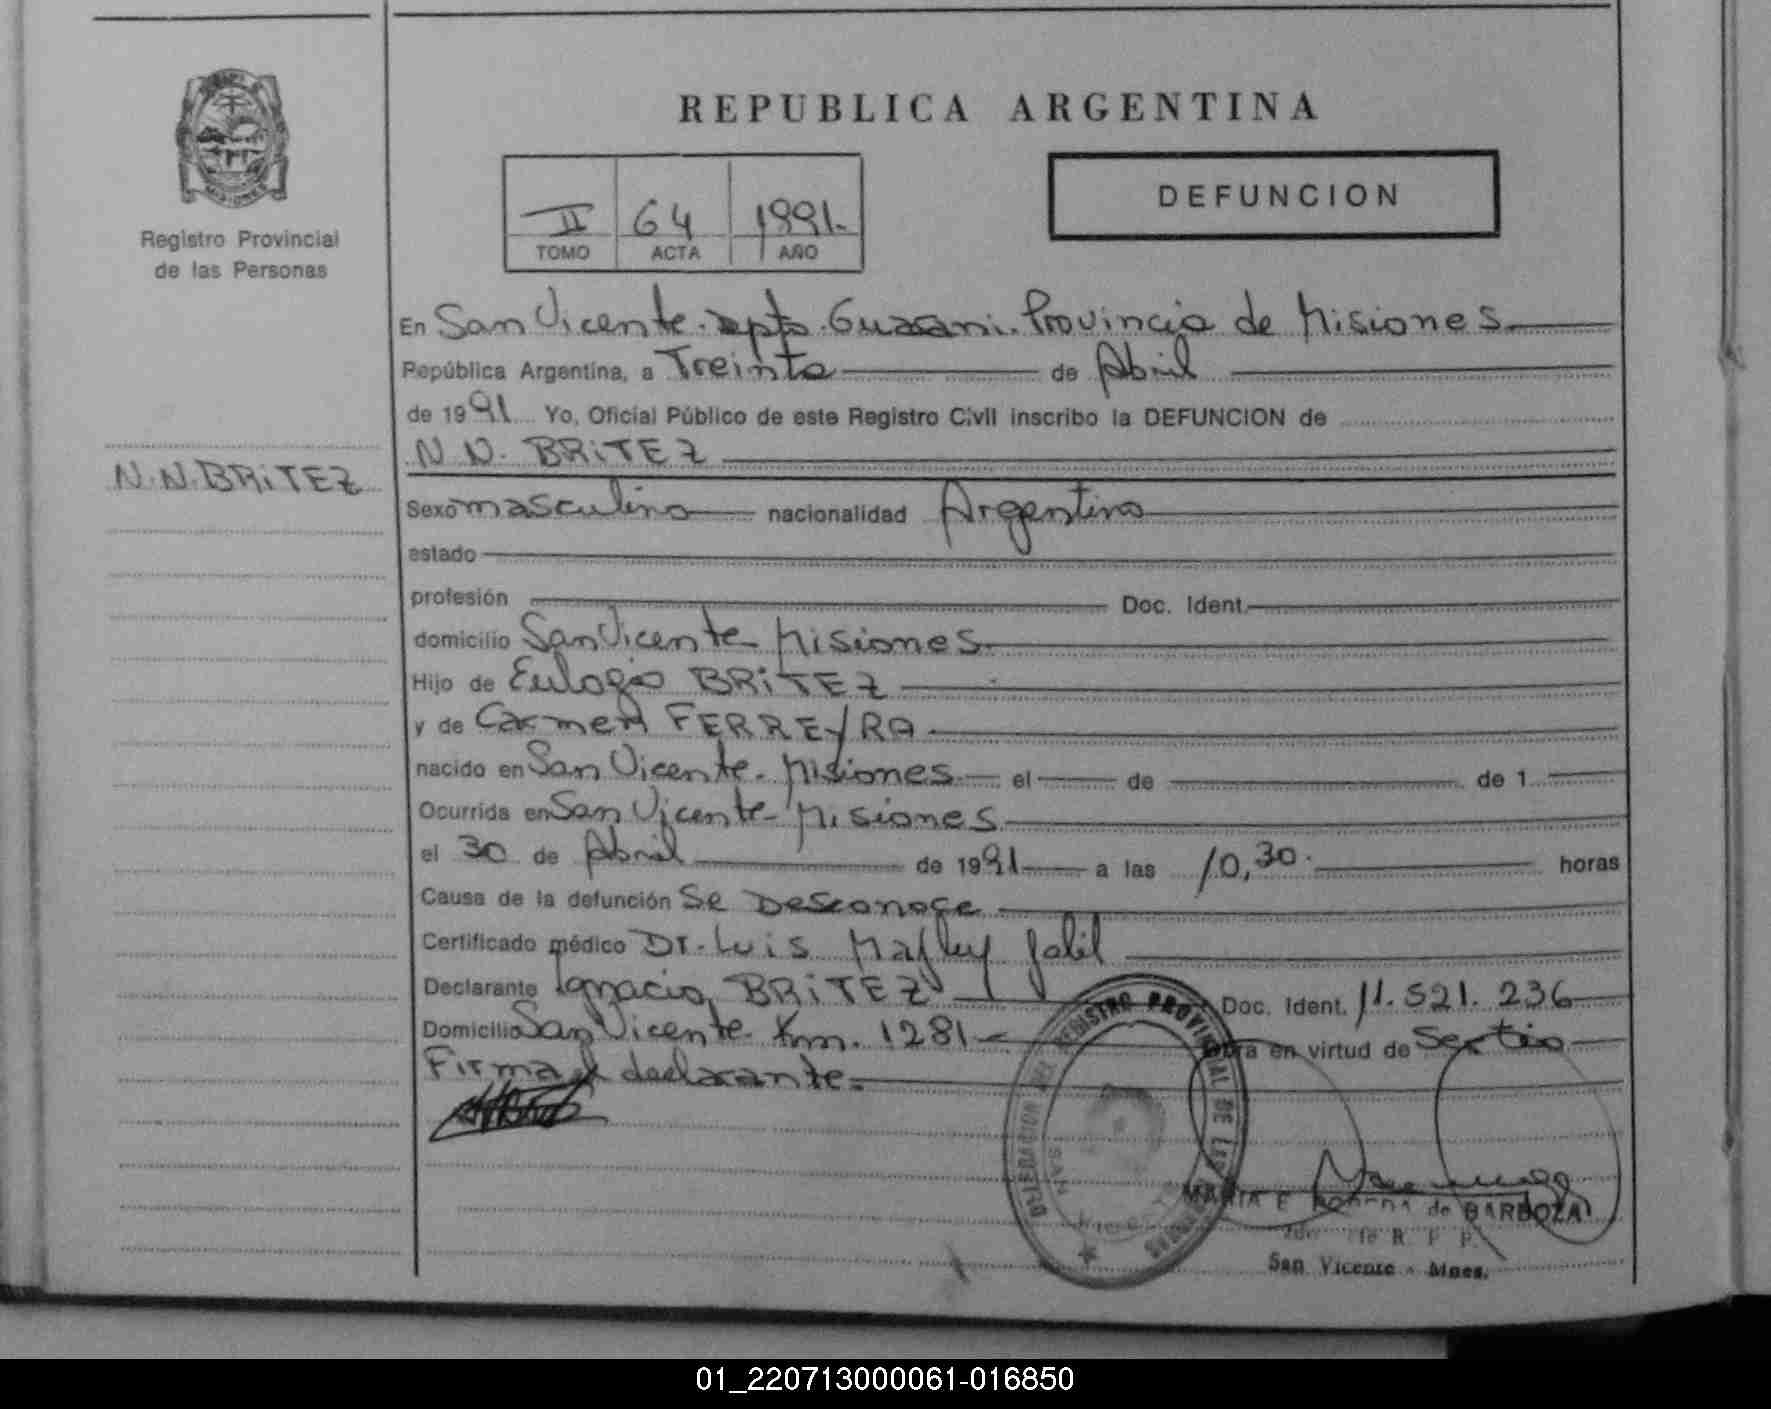 REPUBLICA ARGENTINA
MISIONES
Registro Provincial
de las Personas
II 64 1991.
TOMO ACTA AÑO
DEFUNCION
En San Vicente. Dpto. Guarani. Provincia de Misiones
República Argentina, a Treinta de Abril
de 1991 Yo, Oficial Público de este Registro Civil inscribo la DEFUNCION de
N.N. BRiTEZ
N.N. BRiTEZ
Sexo masculino nacionalidad Argentino
estado
profesión Doc. Ident.
domicilio San Vicente Misiones
Hijo de Eulogio BRiTEZ
y de Carmen FERREYRA
nacido en San Vicente - Misiones el de de 1
Ocurrida en San Vicente - Misiones
el 30 de Abril de 1991 a las 10,30. horas
Causa de la defunción Se Desconoce
Certificado médico Dr. Luis Jalil
Declarante Ignacio BRiTEZ Doc. Ident. 11.521.236
Domicilio San Vicente Km. 1281
Obra en virtud de
Firma el declarante.
DELEGACION DEL REGISTRO PROVINCIAL DE LAS PERSONAS
SAN VICENTE
MARIA E de BARBOZA
R. P. P.
San Vicente - Mnes.
01_220713000061-016850